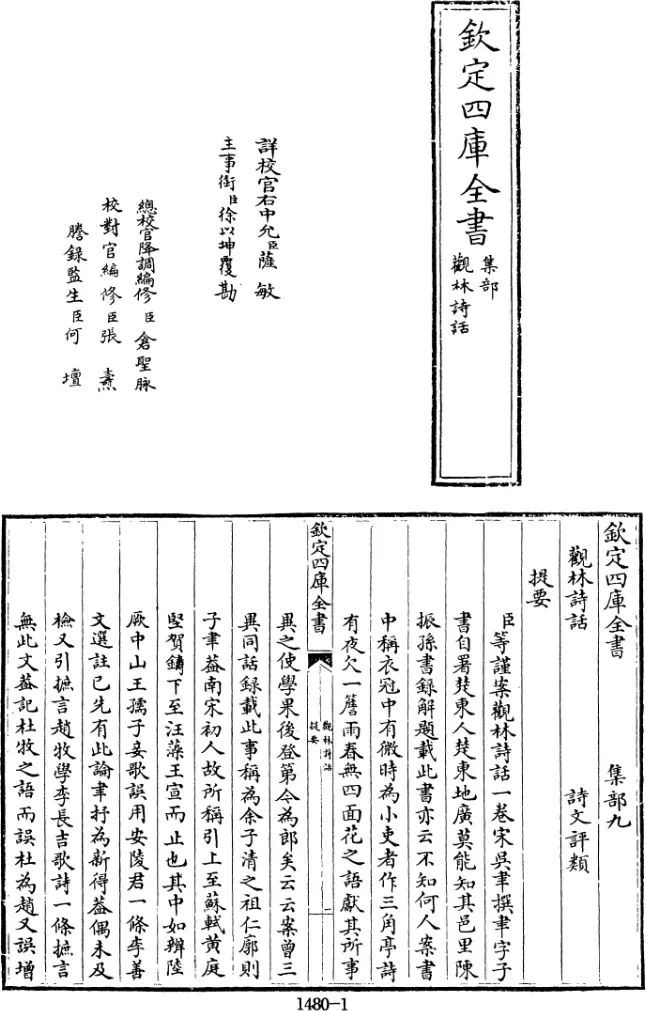 欽定四庫全書
集部
觀林詩話
詳校官右中允臣薩敏
主事銜臣徐以坤覆勘
總校官降調編修臣倉聖脉
校對官編修臣張燾
謄錄監生臣何壇
欽定四庫全書 集部九
觀林詩話 詩文評類
提要
臣等謹案觀林詩話一卷宋吳聿撰聿字子
書自署楚東人楚東地廣莫能知其邑里陳
振孫書録解題載此書亦云不知何人案書
中稱衣冠中有微時為小吏者作三角亭詩
有夜欠一簷雨春無四面花之語獻其所事
欽定四庫全書
觀林詩話
提要
一
異之使學果後登第今為郎矣云云案曾三
異同話録載此事稱為余子清之祖仁廓則
子聿葢南宋初人故所稱引上至蘇軾黄庭
堅賀鑄下至汪藻王宣而止也其中如辨陸
厥中山王孺子妾歌誤用安陵君一條李善
文選註已先有此論聿抒為新得葢偶未及
檢又引摭言趙牧學李長吉歌詩一條摭言
無此文葢記杜牧之語而誤杜為趙又誤增
1480-1